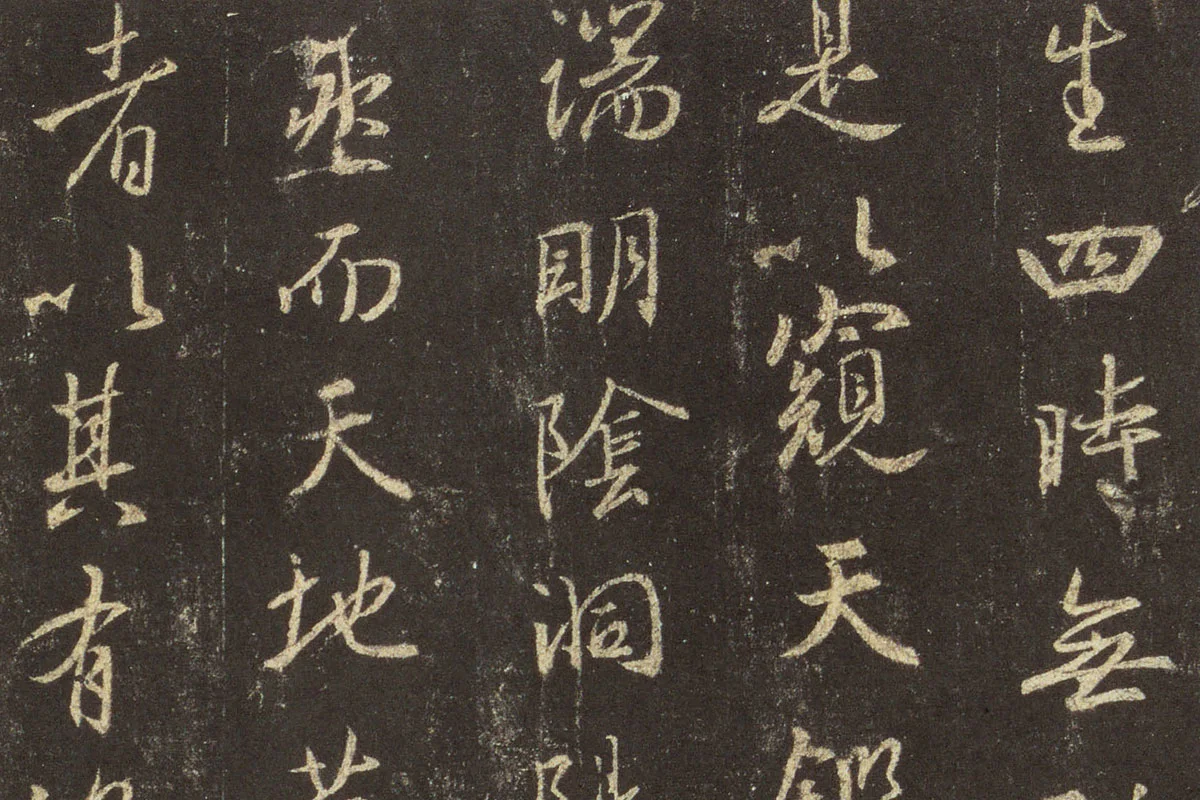 生四時無
是以窺天鑑
端明陰洞陽
然而天地苞
者以其有